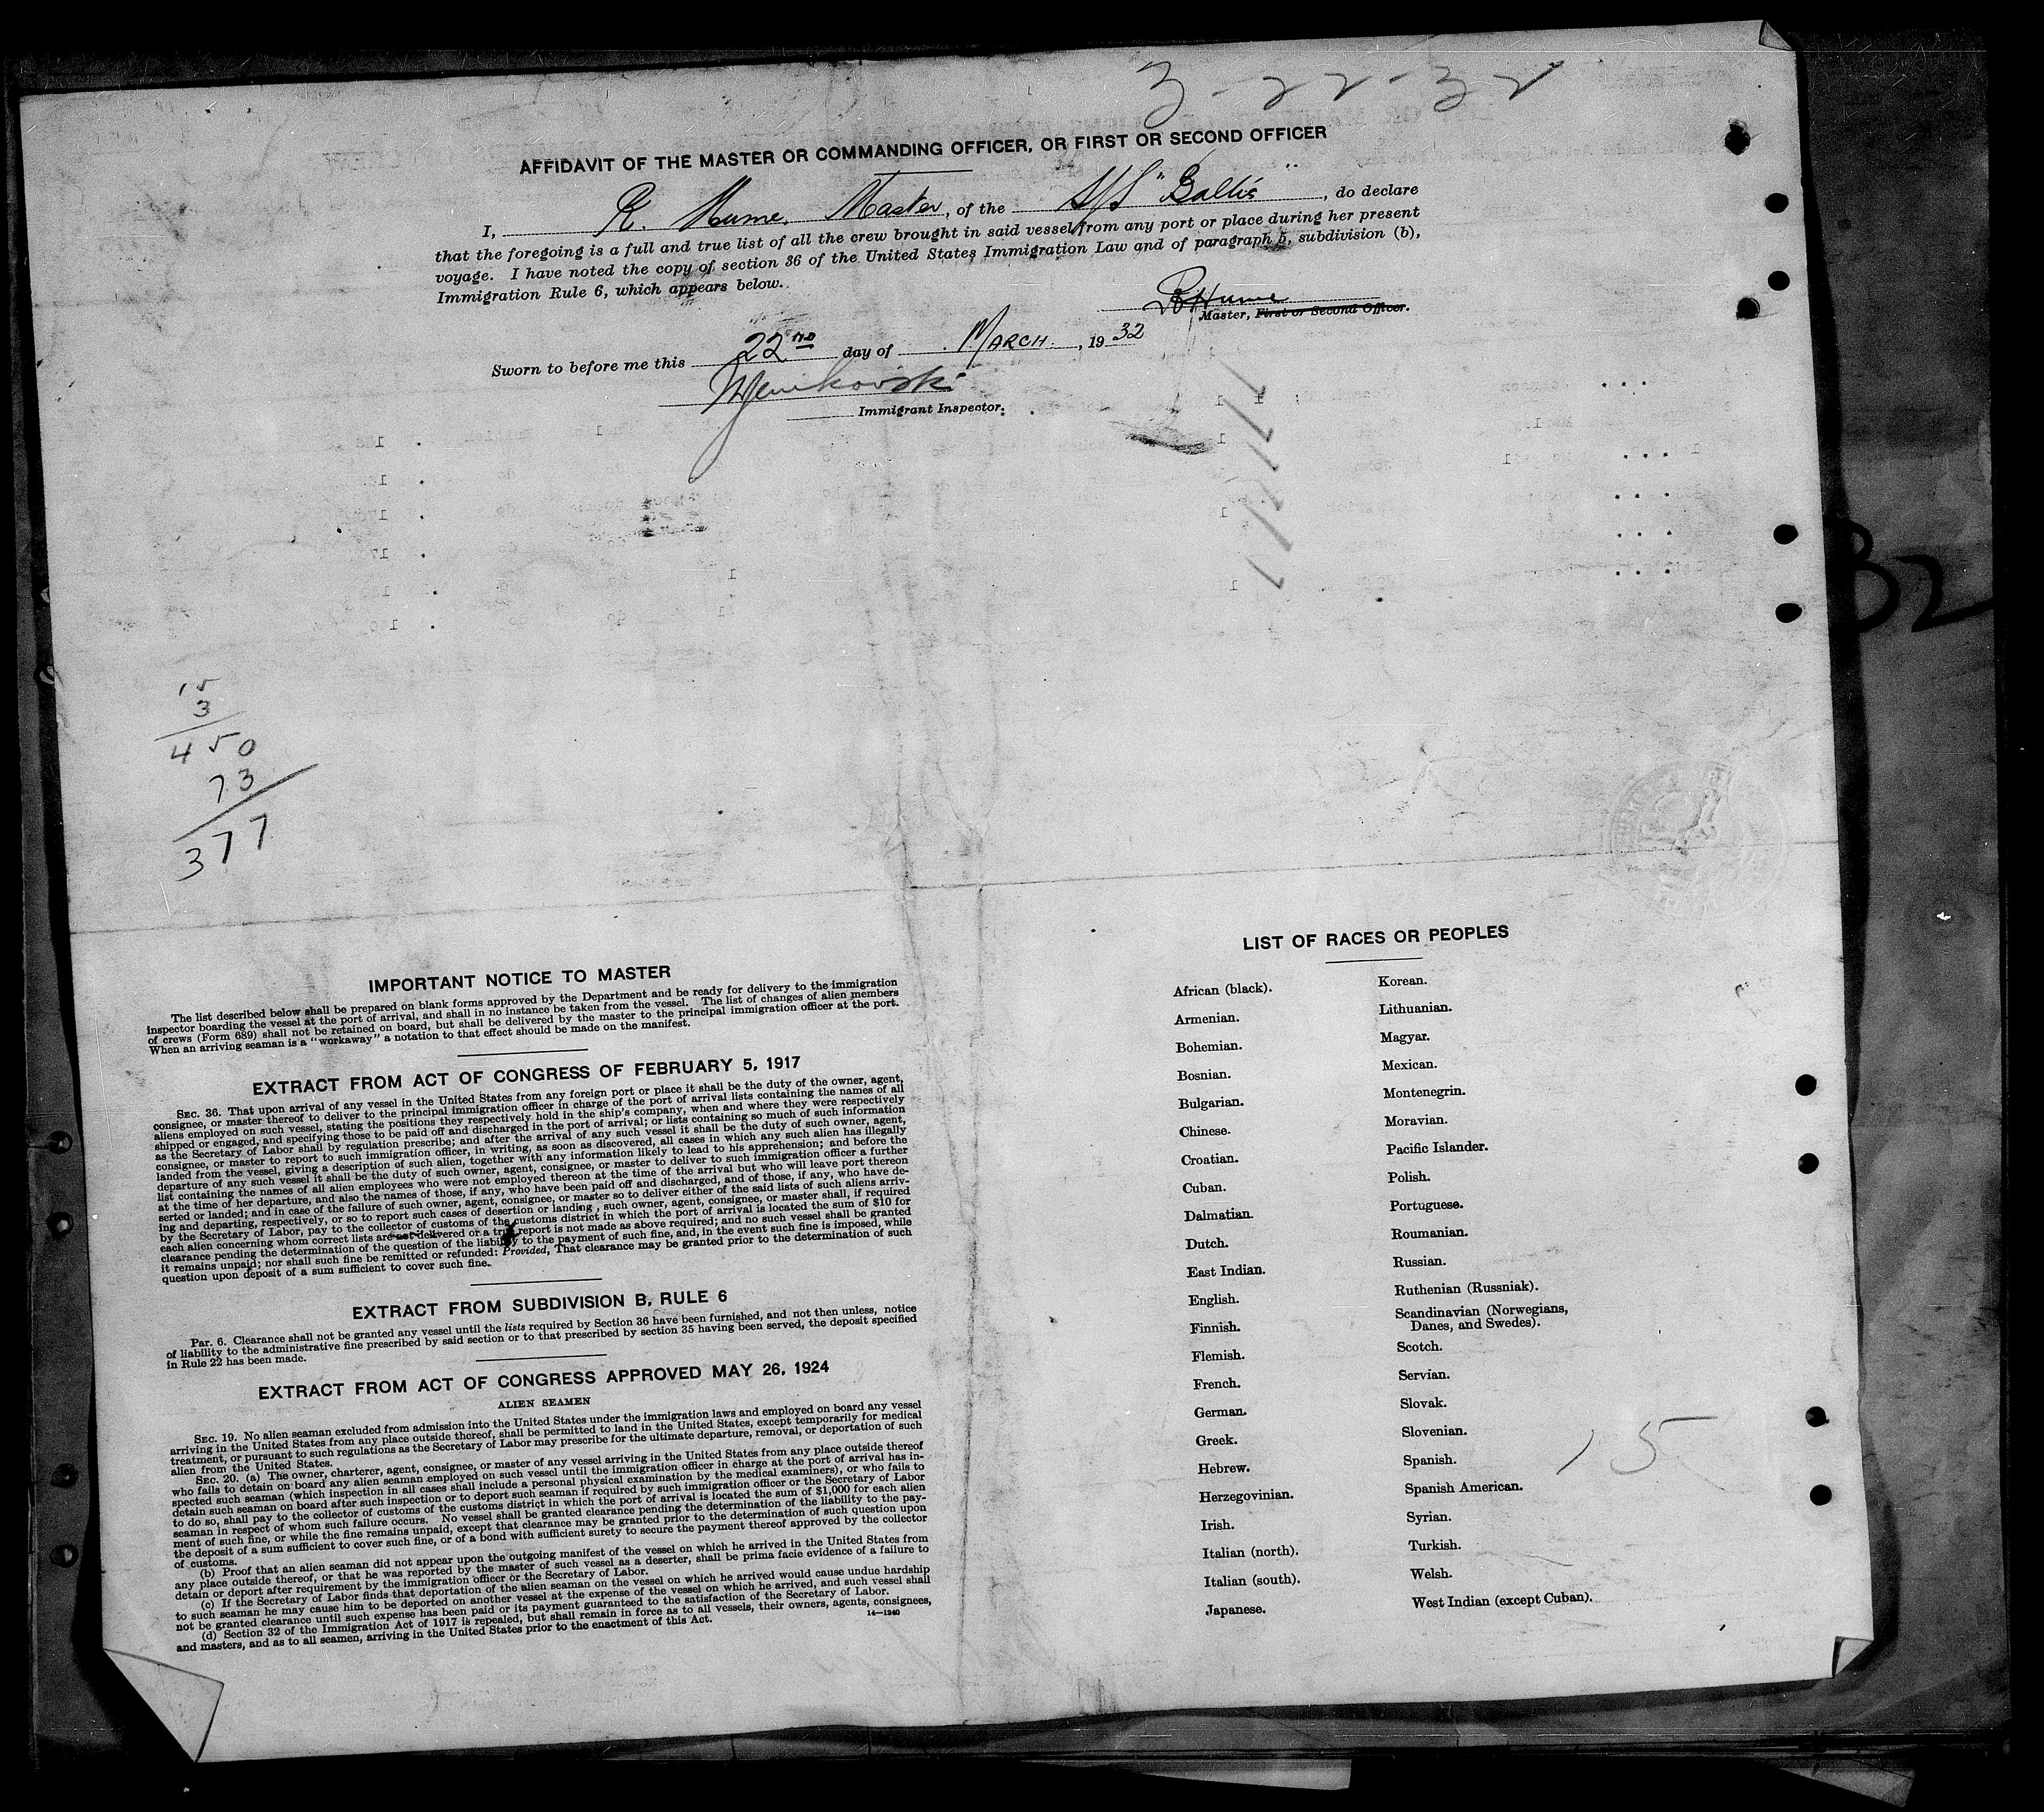 3-22-32
AFFIDAVIT OF THE MASTER OR COMMANDING OFFICER, OR FIRST OR SECOND OFFICER
I, R. Hume, Master, of the S/S "Baltic", do declare
that the foregoing is a full and true list of all the crew brought in said vessel from any port or place during her present
voyage. I have noted the copy of section 36 of the United States Immigration Law and of paragraph 5, subdivision (b),
Immigration Rule 6, which appears below.
R Hume
Master, First or Second Officer.
Sworn to before me this 22nd day of MARCH, 1932
Immigrant Inspector.
32
15
3
450
73
377
IMPORTANT NOTICE TO MASTER
The list described below shall be prepared on blank forms approved by the Department and be ready for delivery to the immigration
inspector boarding the vessel at the port of arrival, and shall in no instance be taken from the vessel. The list of changes of alien members
of crews (Form 689) shall not be retained on board, but shall be delivered by the master to the principal immigration officer at the port.
When an arriving seaman is a "workaway" a notation to that effect should be made on the manifest.
EXTRACT FROM ACT OF CONGRESS OF FEBRUARY 5, 1917
SEC. 36. That upon arrival of any vessel in the United States from any foreign port or place it shall be the duty of the owner, agent,
consignee, or master thereof to deliver to the principal immigration officer in charge of the port of arrival lists containing the names of all
aliens employed on such vessel, stating the positions they respectively hold in the ship's company, when and where they were respectively
shipped or engaged, and specifying those to be paid off and discharged in the port of arrival; or lists containing so much of such information
as the Secretary of Labor shall by regulation prescribe; and after the arrival of any such vessel it shall be the duty of such owner, agent,
consignee, or master to report to such immigration officer, in writing, as soon as discovered, all cases in which any such alien has illegally
landed from the vessel, giving a description of such alien, together with any information likely to lead to his apprehension; and before the
departure of any such vessel it shall be the duty of such owner, agent, consignee, or master to deliver to such immigration officer a further
list containing the names of all alien employees who were not employed thereon at the time of the arrival but who will leave port thereon
at the time of her departure, and also the names of those, if any, who have been paid off and discharged, and of those, if any, who have de-
serted or landed; and in case of the failure of such owner, agent, consignee, or master so to deliver either of the said lists of such aliens arriv-
ing and departing, respectively, or so to report such cases of desertion or landing, such owner, agent, consignee, or master shall, if required
by the Secretary of Labor, pay to the collector of customs of the customs district in which the port of arrival is located the sum of $10 for
each alien concerning whom correct lists are not delivered or a true report is not made as above required; and no such vessel shall be granted
clearance pending the determination of the question of the liability to the payment of such fine, and, in the event such fine is imposed, while
it remains unpaid; nor shall such fine be remitted or refunded: Provided, That clearance may be granted prior to the determination of such
question upon deposit of a sum sufficient to cover such fine.
EXTRACT FROM SUBDIVISION B, RULE 6
Par. 6. Clearance shall not be granted any vessel until the lists required by Section 36 have been furnished, and not then unless, notice
of liability to the administrative fine prescribed by said section or to that prescribed by section 35 having been served, the deposit specified
in Rule 22 has been made.
EXTRACT FROM ACT OF CONGRESS APPROVED MAY 26, 1924
ALIEN SEAMEN
SEC. 19. No alien seaman excluded from admission into the United States under the immigration laws and employed on board any vessel
arriving in the United States from any place outside thereof, shall be permitted to land in the United States, except temporarily for medical
treatment, or pursuant to such regulations as the Secretary of Labor may prescribe for the ultimate departure, removal, or deportation of such
alien from the United States.
SEC. 20. (a) The owner, charterer, agent, consignee, or master of any vessel arriving in the United States from any place outside thereof
who fails to detain on board any alien seaman employed on such vessel until the immigration officer in charge at the port of arrival has in-
spected such seaman (which inspection in all cases shall include a personal physical examination by the medical examiners), or who fails to
detain such seaman on board after such inspection or to deport such seaman if required by such immigration officer or the Secretary of Labor
to do so, shall pay to the collector of customs of the customs district in which the port of arrival is located the sum of $1,000 for each alien
seaman in respect of whom such failure occurs. No vessel shall be granted clearance pending the determination of the liability to the pay-
ment of such fine, or while the fine remains unpaid, except that clearance may be granted prior to the determination of such question upon
the deposit of a sum sufficient to cover such fine, or of a bond with sufficient surety to secure the payment thereof approved by the collector
of customs.
(b) Proof that an alien seaman did not appear upon the outgoing manifest of the vessel on which he arrived in the United States from
any place outside thereof, or that he was reported by the master of such vessel as a deserter, shall be prima facie evidence of a failure to
detain or deport after requirement by the immigration officer or the Secretary of Labor.
(c) If the Secretary of Labor finds that deportation of the alien seaman on the vessel on which he arrived would cause undue hardship
to such seaman he may cause him to be deported on another vessel at the expense of the vessel on which he arrived, and such vessel shall
not be granted clearance until such expense has been paid or its payment guaranteed to the satisfaction of the Secretary of Labor.
(d) Section 32 of the Immigration Act of 1917 is repealed, but shall remain in force as to all vessels, their owners, agents, consignees,
and masters, and as to all seamen, arriving in the United States prior to the enactment of this Act.
14—1240
LIST OF RACES OR PEOPLES
African (black).
Armenian.
Bohemian.
Bosnian.
Bulgarian.
Chinese.
Croatian.
Cuban.
Dalmatian.
Dutch.
East Indian.
English.
Finnish.
Flemish.
French.
German.
Greek.
Hebrew.
Herzegovinian.
Irish.
Italian (north).
Italian (south).
Japanese.
Korean.
Lithuanian.
Magyar.
Mexican.
Montenegrin.
Moravian.
Pacific Islander.
Polish.
Portuguese.
Roumanian.
Russian.
Ruthenian (Russniak).
Scandinavian (Norwegians,
Danes, and Swedes).
Scotch.
Servian.
Slovak.
Slovenian.
Spanish.
Spanish American.
Syrian.
Turkish.
Welsh.
West Indian (except Cuban).
15